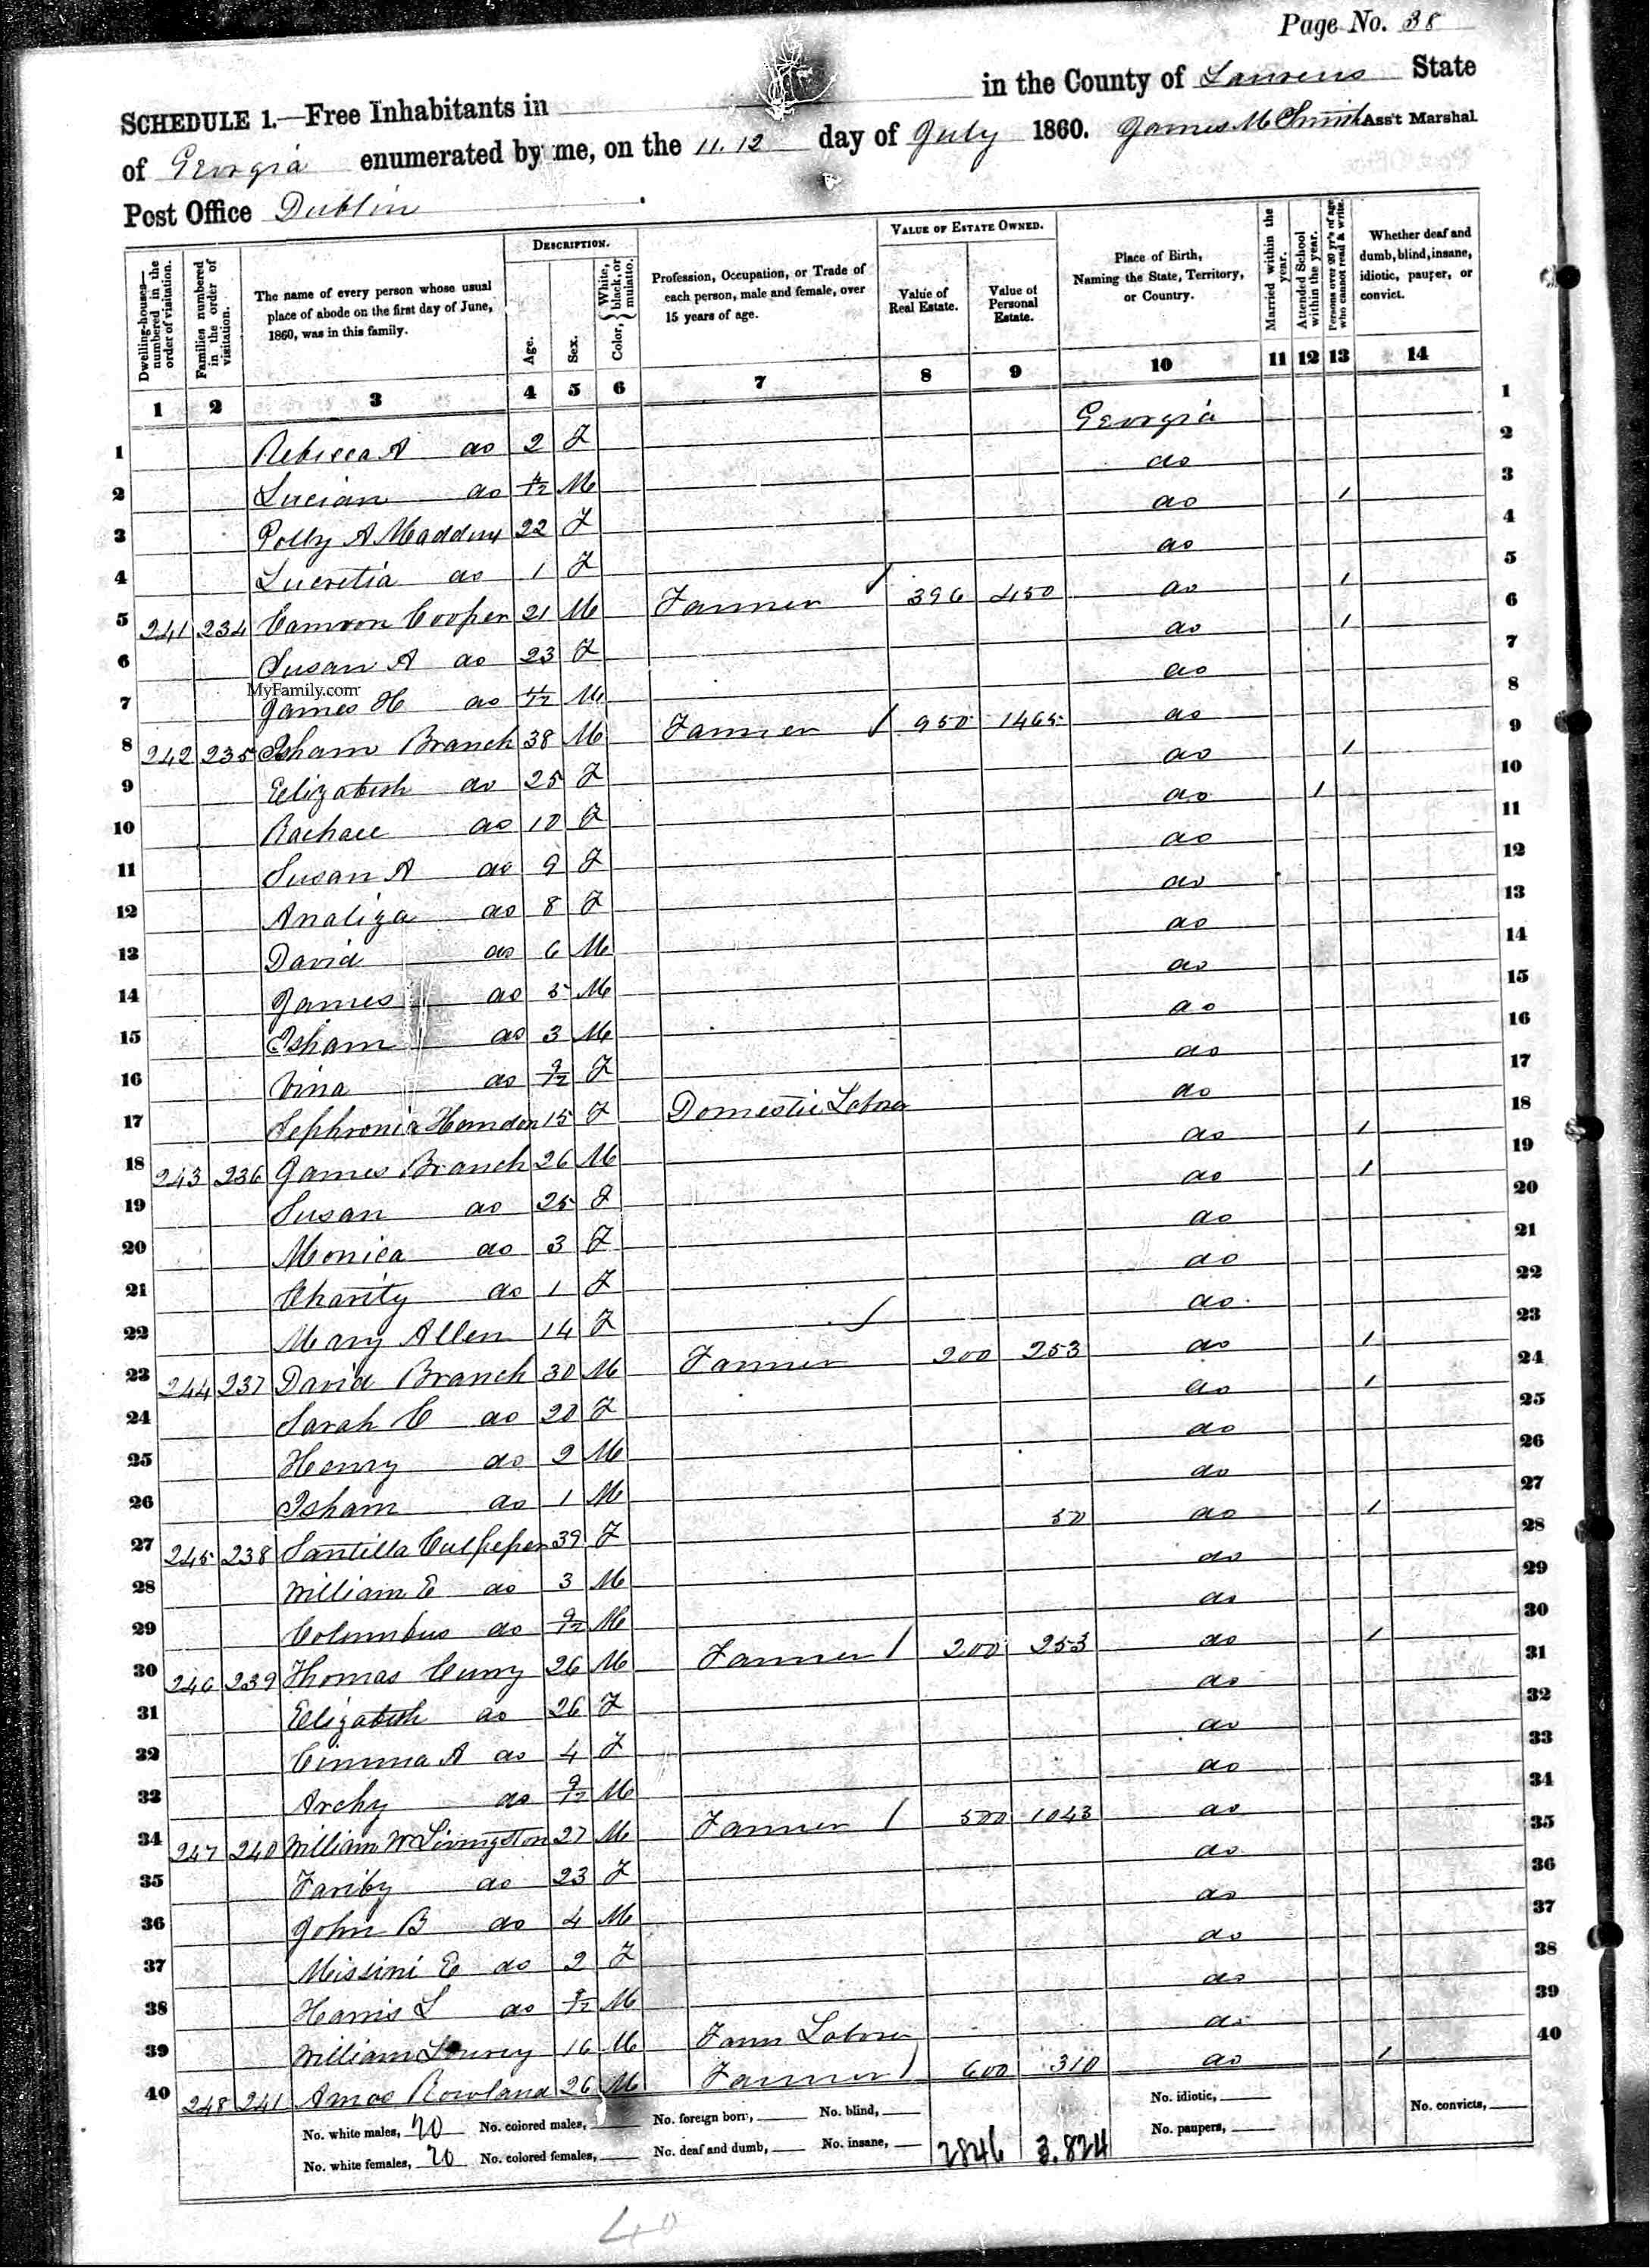 Page No. 38
SCHEDULE 1.—Free Inhabitants in in the County of Laurens State
of Georgia enumerated by me, on the 11.12 day of July 1860. James M Smith Ass't Marshal
Post Office Dublin
Dwelling-houses—numbered in the order of visitation.
Families numbered in the order of visitation.
The name of every person whose usual place of abode on the first day of June, 1860, was in this family.
DESCRIPTION.
Age.
Sex.
Color, {White, black, or mulatto.
Profession, Occupation, or Trade of each person, male and female, over 15 years of age.
VALUE OF ESTATE OWNED.
Value of Real Estate.
Value of Personal Estate.
Place of Birth, Naming the State, Territory, or Country.
Married within the year.
Attended School within the year.
Persons over 20 yr's of age who cannot read & write.
Whether deaf and dumb, blind, insane, idiotic, pauper, or convict.
1 2 3 4 5 6 7 8 9 10 11 12 13 14
1 Rebecca A do 2 F Georgia 1
2 Lucian do M do 2
3 Polly A Maddux 22 F do / 3
4 Lucretia do 1 F do 4
5 241 234 Camron Cooper 21 M Farmer / 396 450 do / 5
6 Susan A do 23 F do / 6
MyFamily.com
7 James H do M do 7
8 242 235 Isham Branch 38 M Farmer / 950 1465 do 8
9 Elizabeth do 25 F do / 9
10 Rachael do 10 F do / 10
11 Susan A do 9 F do 11
12 Analiza do 8 F do 12
13 David do 6 M do 13
14 James do 5 M do 14
15 Isham do 3 M do 15
16 Vina do 9/12 F do 16
17 Sephronia Hamden 15 F Domestic Labor do 17
18 243 236 James Branch 26 M do / 18
19 Susan do 25 F do / 19
20 Monica do 3 F do 20
21 Charity do 1 F do 21
22 Mary Allen 14 F / do 22
23 244 237 David Branch 30 M Farmer 200 253 do / 23
24 Sarah C do 20 F do / 24
25 Henry do 2 M do 25
26 Isham do 1 M do 26
27 245 238 Santilla Culpeper 39 F 50 do / 27
28 William E do 3 M do 28
29 Columbus do 9/12 M do 29
30 246 239 Thomas Curry 26 M Farmer / 200 253 do / 30
31 Elizabeth do 26 F do 31
32 A do 4 F do 32
33 Archy do 9/12 M do 33
34 247 240 William W Livingston 27 M Farmer / 500 1043 do 34
35 Fariby do 23 F do 35
36 John B do 4 M do 36
37 Missini E do 2 F do 37
38 Harris L do M do 38
39 William 16 M Farm Labor do 39
40 248 241 Amos Rowland 26 M Farmer / 600 310 do / 40
No. white males, 20 No. colored males, No. foreign born, No. blind, No. idiotic, No. convicts,
No. white females, 20 No. colored females, No. deaf and dumb, No. insane, 2846 3.824 No. paupers,
40